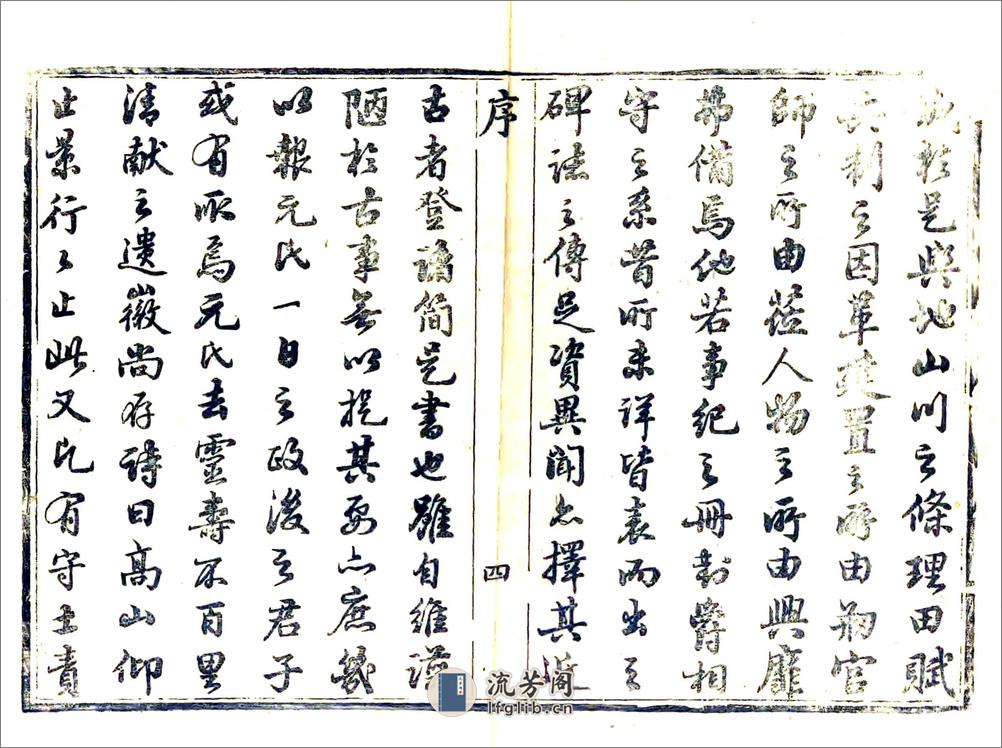 於是與地山川之條理田賦
兵制之因革建置之所由初官
師之所由蒞人物之所由興靡
弗備焉他若事紀之冊封爵相
守之系昔所未詳皆表而出之
碑誌之傳足資異聞亦擇其近
序
四
古者登諸簡是書也雖自維謭
陋於古事無以挹其要亦庶幾
以報元氏一日之政後之君子
或有取焉元氏去靈壽不百里
清献之遺徽尚存詩曰高山仰
止景行行止此又凡有守土責
流芳阁
lfglib.cn